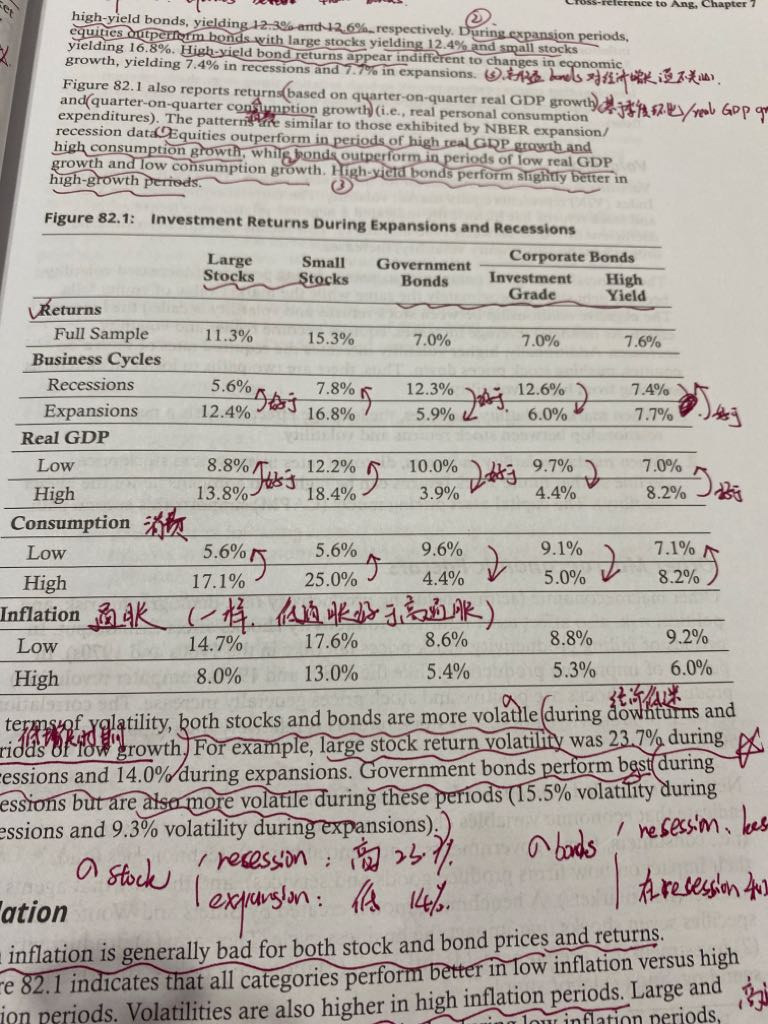 Cross-reference to Ang, Chapter 7
high-yield bonds, yielding 12.3% and 12.6%, respectively. During expansion periods,
②
equities outperform bonds with large stocks yielding 12.4% and small stocks
yielding 16.8%. High-yield bond returns appear indifferent to changes in economic
growth, yielding 7.4% in recessions and 7.7% in expansions.
Figure 82.1 also reports returns (based on quarter-on-quarter real GDP growth)
and (quarter-on-quarter consumption growth) (i.e., real personal consumption
消费
expenditures). The patterns are similar to those exhibited by NBER expansion/
recession data. Equities outperform in periods of high real GDP growth and
high consumption growth, while bonds outperform in periods of low real GDP
growth and low consumption growth. High-yield bonds perform slightly better in
high-growth periods.
③
Figure 82.1: Investment Returns During Expansions and Recessions
Large Stocks Small Stocks Government Bonds Corporate Bonds
Investment Grade High Yield
Returns
Full Sample 11.3% 15.3% 7.0% 7.0% 7.6%
Business Cycles
Recessions 5.6% 7.8% 12.3% 12.6% 7.4%
Expansions 12.4% 好于 16.8% 5.9% 好于 6.0% 7.7% 好于
Real GDP
Low 8.8% 12.2% 10.0% 9.7% 7.0%
High 13.8% 好于 18.4% 3.9% 好于 4.4% 8.2% 好于
Consumption 消费
Low 5.6% 5.6% 9.6% 9.1% 7.1%
High 17.1% 25.0% 4.4% 5.0% 8.2%
Inflation 通胀 (一样, 低通胀好于高通胀)
Low 14.7% 17.6% 8.6% 8.8% 9.2%
High 8.0% 13.0% 5.4% 5.3% 6.0%
经济低迷
terms of volatility, both stocks and bonds are more volatile (during downturns and
低增长时期
riods of low growth.) For example, large stock return volatility was 23.7% during
essions and 14.0% during expansions. Government bonds perform best (during
essions but are also more volatile during these periods (15.5% volatility during
essions and 9.3% volatility during expansions).
stock resession: 高 23.7%
expansion: 低 14%
bonds resession
在resession
lation
inflation is generally bad for both stock and bond prices and returns.
re 82.1 indicates that all categories perform better in low inflation versus high
ion periods. Volatilities are also higher in high inflation periods. Large and
low inflation periods,